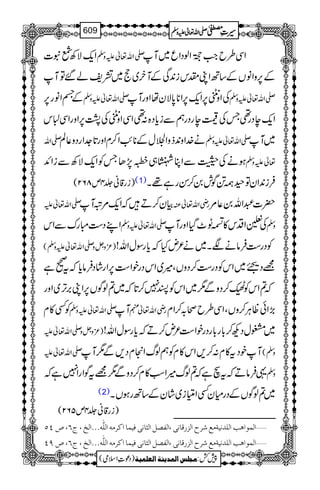 سیرتِ مصطفی صلی اللہ تعالٰی علیہ وسلم
609
اسی طرح حجۃ الوداع میں آپ صلی اللہ تعالٰی علیہ وسلم جب ایک لاکھ شمع نبوت
کے پروانوں کے ساتھ اپنی مقدس زندگی کے آخری حج میں تشریف لے گئے تو آپ
صلی اللہ تعالٰی علیہ وسلم کی اونٹنی پر ایک پرانا پالان تھا اور آپ صلی اللہ تعالٰی علیہ وسلم کے جسم انور پر
ایک چادر تھی جس کی قیمت چار درہم سے زیادہ نہ تھی اسی اونٹنی کی پشت پر اور اسی لباس
میں آپ صلی اللہ تعالٰی علیہ وسلم نے خداوند ذوالجلال کے نائب اکرم اور تاجدار دو عالم صلی اللہ
تعالٰی علیہ وسلم ہونے کی حیثیت سے اپنا شہنشاہی خطبہ پڑھا جس کو ایک لاکھ سے زائد
فرزندان توحید ہمہ تن گوش بن کر سن رہے تھے۔ (1) (زرقانی جلد ۴ ص ۲۶۸)
حضرت عبداللہ بن عامر رضی اللہ تعالٰی عنہ بیان کرتے ہیں کہ ایک مرتبہ آپ صلی اللہ تعالٰی علیہ
وسلم کی نعلین اقدس کا تسمہ ٹوٹ گیا اور آپ صلی اللہ تعالٰی علیہ وسلم اپنے دست مبارک سے اس
کو درست فرمانے لگے۔ میں نے عرض کیا کہ یا رسول اللہ! (عزوجل و صلی اللہ تعالٰی علیہ وسلم)
مجھے دیجئے میں اس کو درست کر دوں، میری اس درخواست پر ارشاد فرمایا کہ یہ صحیح ہے
کہ تم اس کو ٹھیک کر دو گے مگر میں اس کو پسند نہیں کرتا کہ میں تم لوگوں پر اپنی برتری اور
بڑائی ظاہر کروں، اسی طرح صحابہ کرام رضی اللہ تعالٰی عنہم آپ صلی اللہ تعالٰی علیہ وسلم کو کسی کام
میں مشغول دیکھ کر بار بار درخواست عرض کرتے کہ یا رسول اللہ! (عزوجل و صلی اللہ تعالٰی علیہ
وسلم) آپ خود یہ کام نہ کریں اس کام کو ہم لوگ انجام دیں گے مگر آپ صلی اللہ تعالٰی علیہ
وسلم یہی فرماتے کہ یہ سچ ہے کہ تم لوگ میرا سب کام کر دو گے مگر مجھے یہ گوارا نہیں ہے کہ
میں تم لوگوں کے درمیان کسی امتیازی شان کے ساتھ رہوں۔ (2)
(زرقانی جلد ۴ ص ۲۶۵)
1......المواهب اللدنية مع شرح الزرقانی، الفصل الثانی فیما اکرمه الله...الخ، ج٦، ص ٥٤
2......المواهب اللدنية مع شرح الزرقانی، الفصل الثانی فیما اکرمه الله...الخ، ج٦، ص ٤٩
پیش کش: مجلس المدینة العلمیة (دعوتِ اسلامی)